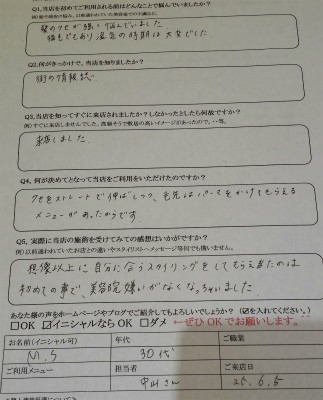 Q1,当店を初めてご利用される前はどんなことで悩んでいましたか？
髪のクセが強く悩んでいました
猫毛でもあり湿気の時期は大変でした
Q2,何がきっかけで、当店を知りましたか？
街の情報誌
Q3,当店を知ってすぐに来店されましたか？しなかったとしたら何故ですか？
例）すぐに来店しませんでした。高級そうで敷居の高いイメージがあったので、・・等。
来店しました。
Q4, 何が決めてとなって当店をご利用をいただけたのですか？
クセをストレートで伸ばしつつ、毛先はパーマをかけてもらえる
メニューがあったからです。
Q5, 実際に当店の施術を受けてみての感想はいかがですか？
例）以前通われていたお店との違いやスタイリストへメッセージ等何でも構いません。
想像以上に自分に合うスタイリングをしてもらえたのは
初めての事で、美容院嫌いがなくなっちゃいました
あなた様の声をホームページやブログでご紹介してもよろしいでしょうか？（☑を入れてください。）
□OK ☑イニシャルなら OK □ダメ ←ぜひ OK でお願いします。
お名前（イニシャル可） 年代 ご職業
M.S 30代
ご利用メニュー 担当者 ご来店日
中山さん 25.6.5